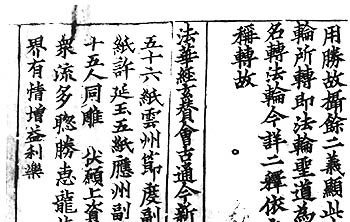 用勝故攝餘二義顯此
輪所轉即法輪聖道為
名轉法輪今詳二釋依
稱轉故。
法華經玄賛會古通今新
五十六紙雲州節度副
紙許延玉五紙應州副
十五人同雕 伏願上資
衆流多聦勝惠龍
界有情增益利樂